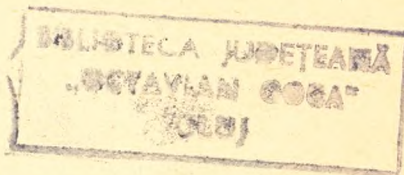 BIBLIOTECA JUDEŢEANĂ
„OCTAVIAN GOGA"
CLUJ